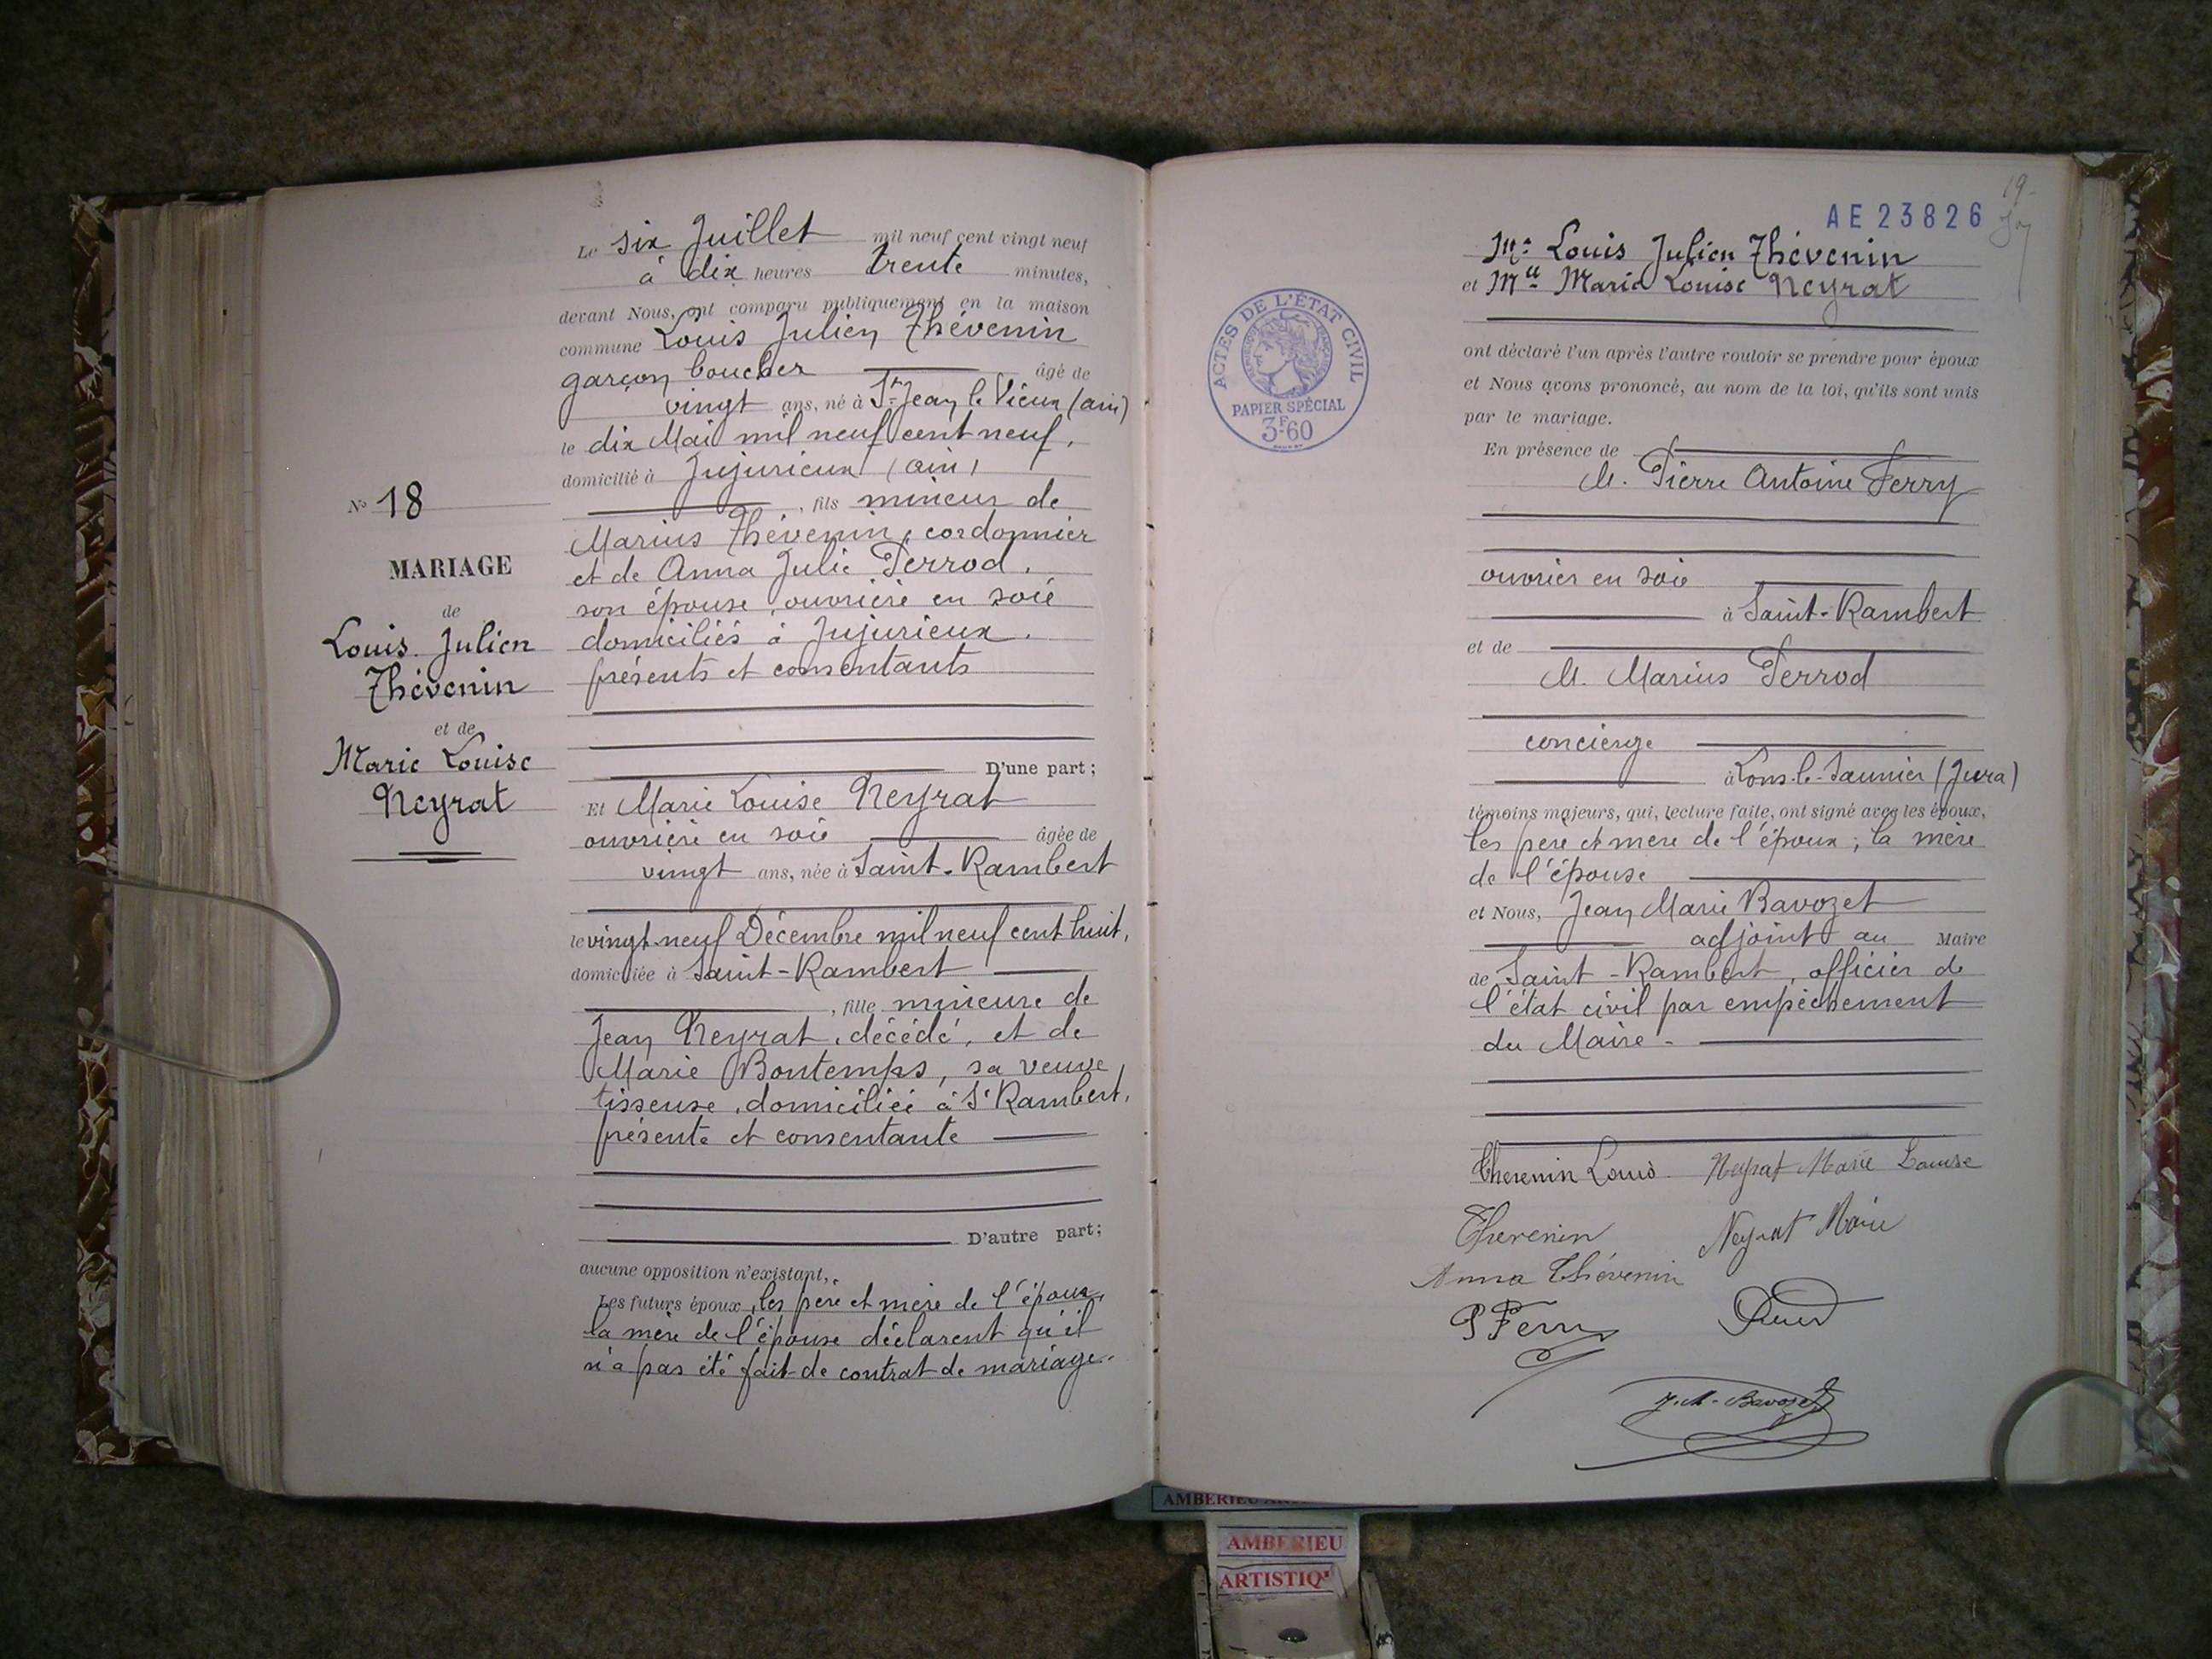 Le six Juillet mil neuf cent vingt neuf
à dix heures trente minutes,
devant Nous, ont comparu publiquement en la maison
commune Louis Julien Thévenin
garçon boucher âgé de
vingt ans, né à St Jean le Vieux (ain)
le dix Mai mil neuf cent neuf,
domicilié à Jujurieux (ain)
, fils mineur de
Marius Thévenin, cordonnier
et de Anna Julie Perrod,
son épouse, ouvrière en soie
domiciliés à Jujurieux,
présents et consentants
D'une part;
Et Marie Louise Neyrat
ouvrière en soie âgée de
vingt ans, née à Saint-Rambert
le vingt-neuf Décembre mil neuf cent huit,
domiciliée à Saint-Rambert
, fille mineure de
Jean Neyrat, décédé, et de
Marie Bontemps, sa veuve
tisseuse, domiciliée à St Rambert,
présente et consentante
D'autre part;
aucune opposition n'existant,
Les futurs époux, les père et mère de l'époux,
la mère de l'épouse déclarent qu'il
n'a pas été fait de contrat de mariage.
No 18
MARIAGE
de
Louis Julien
Thévenin
et de
Marie Louise
Neyrat
19
AE 23826
Mr Louis Julien Thévenin
et Mlle Marie Louise Neyrat
ont déclaré l'un après l'autre vouloir se prendre pour époux
et Nous avons prononcé, au nom de la loi, qu'ils sont unis
par le mariage.
En présence de
M. Pierre Antoine Ferry
ouvrier en soie
à Saint-Rambert
et de
M. Marius Perrod
concierge
à Lons-le-Saunier (Jura)
témoins majeurs, qui, lecture faite, ont signé avec les époux,
les père et mère de l'époux; la mère
de l'épouse
et Nous, Jean Marie Bavozet
adjoint au Maire
de Saint-Rambert, officier de
l'état civil par empêchement
du Maire.
Thevenin Louis Neyrat Marie Louise
Thevenin Neyrat Marie
Anna Thévenin
P Ferry
J. M. Bavozet
ACTES DE L'ÉTAT CIVIL
PAPIER SPÉCIAL
3F60
AMBERIEU
AMBERIEU
ARTISTIQ